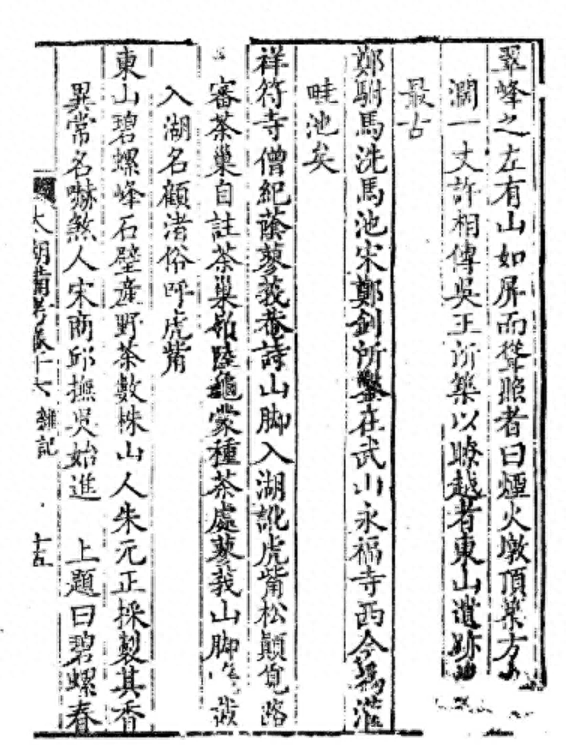 翠峰之左有山如屏而聳照者曰煙火墩頂築方
濶一丈許相傳吳王所築以瞭越者東山遺跡
最古
鄭駙馬洗馬池宋鄭釗所鑿在武山永福寺西今爲灌
畦池矣
祥符寺僧紀蔭蓼莪菴詩山脚入湖訛虎嘴松顛覓路
審茶巢自註茶巢 陸龜蒙種茶處蓼莪山脚
入湖名顧渚俗呼虎嘴
東山碧螺峰石壁產野茶數株山人朱元正採製其香
異常名嚇煞人宋商邱撫吳始進 上題曰碧螺春
太湖備考卷十六 雜記 十五